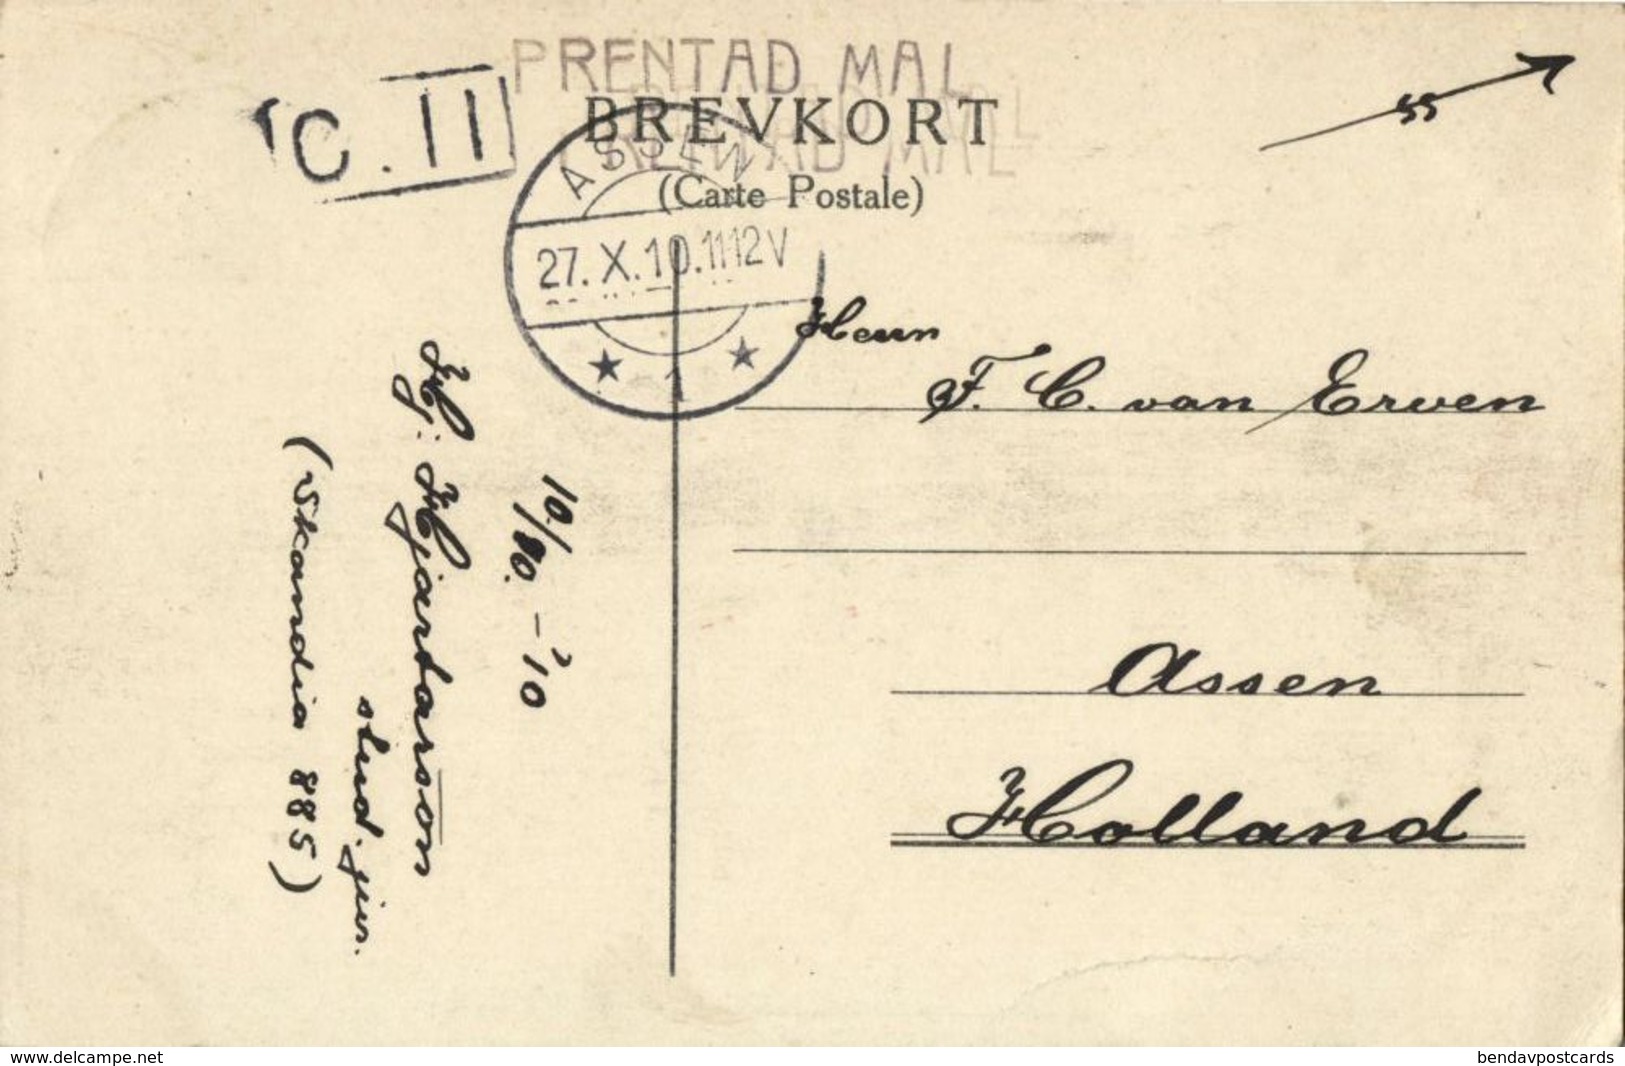 PRENTAD MAL
C. 11
BREVKORT
(Carte Postale)
ASSEN
27.X.10.11-12V
1
Herrn
F. C. van Erven
Assen
Holland
10./10. – '10
H: Hjartarson
stud. jur.
(Skandia 885)
www.delcampe.net
bendavpostcards